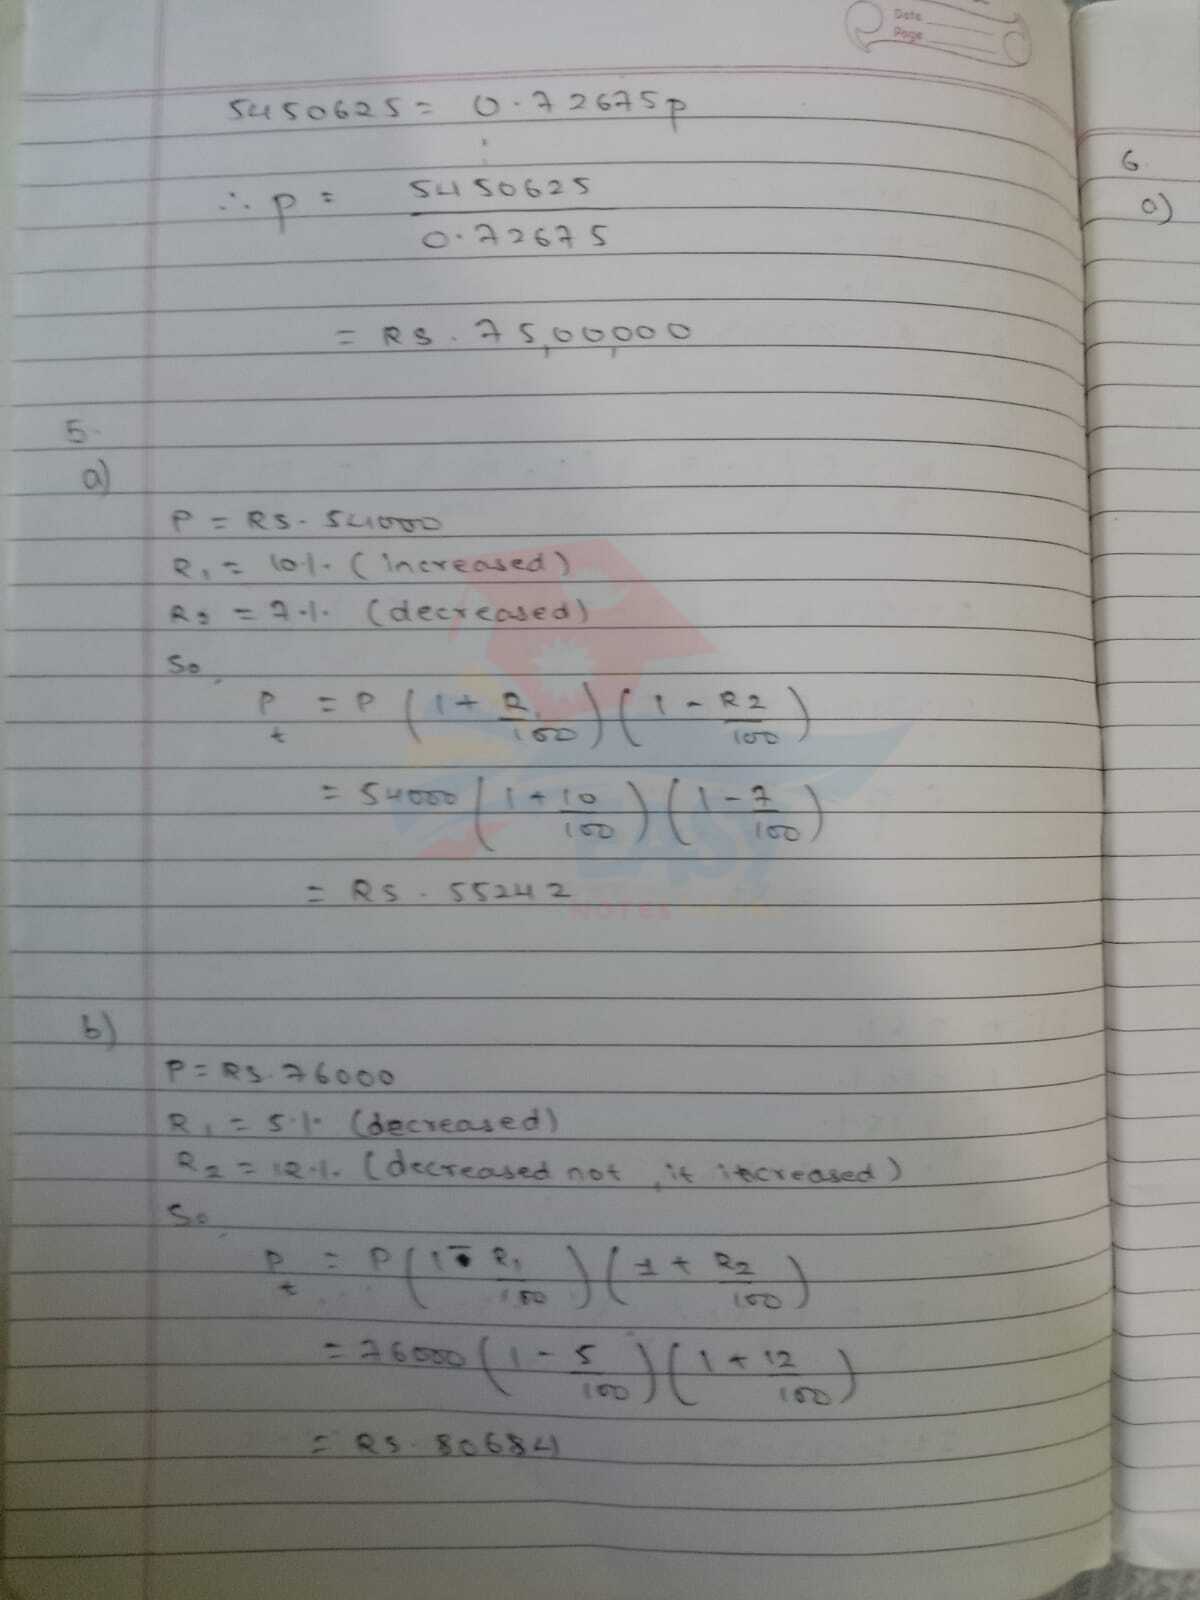 Date
Page
5450625 = 0.72675p
∴ p = 5450625
0.72675
= RS. 75,00,000
5.
a)
P = RS. 54000
R1 = 10% (increased)
R2 = 7% (decreased)
So,
Pt = P (1 + R1/100) (1 - R2/100)
= 54000 (1 + 10/100) (1 - 7/100)
= RS. 55242
EASY
NOTES
b)
P = RS. 76000
R1 = 5% (decreased)
R2 = 12% (decreased not, it increased)
So,
Pt = P (1 - R1/100) (1 + R2/100)
= 76000 (1 - 5/100) (1 + 12/100)
= RS. 80684
6.
a)